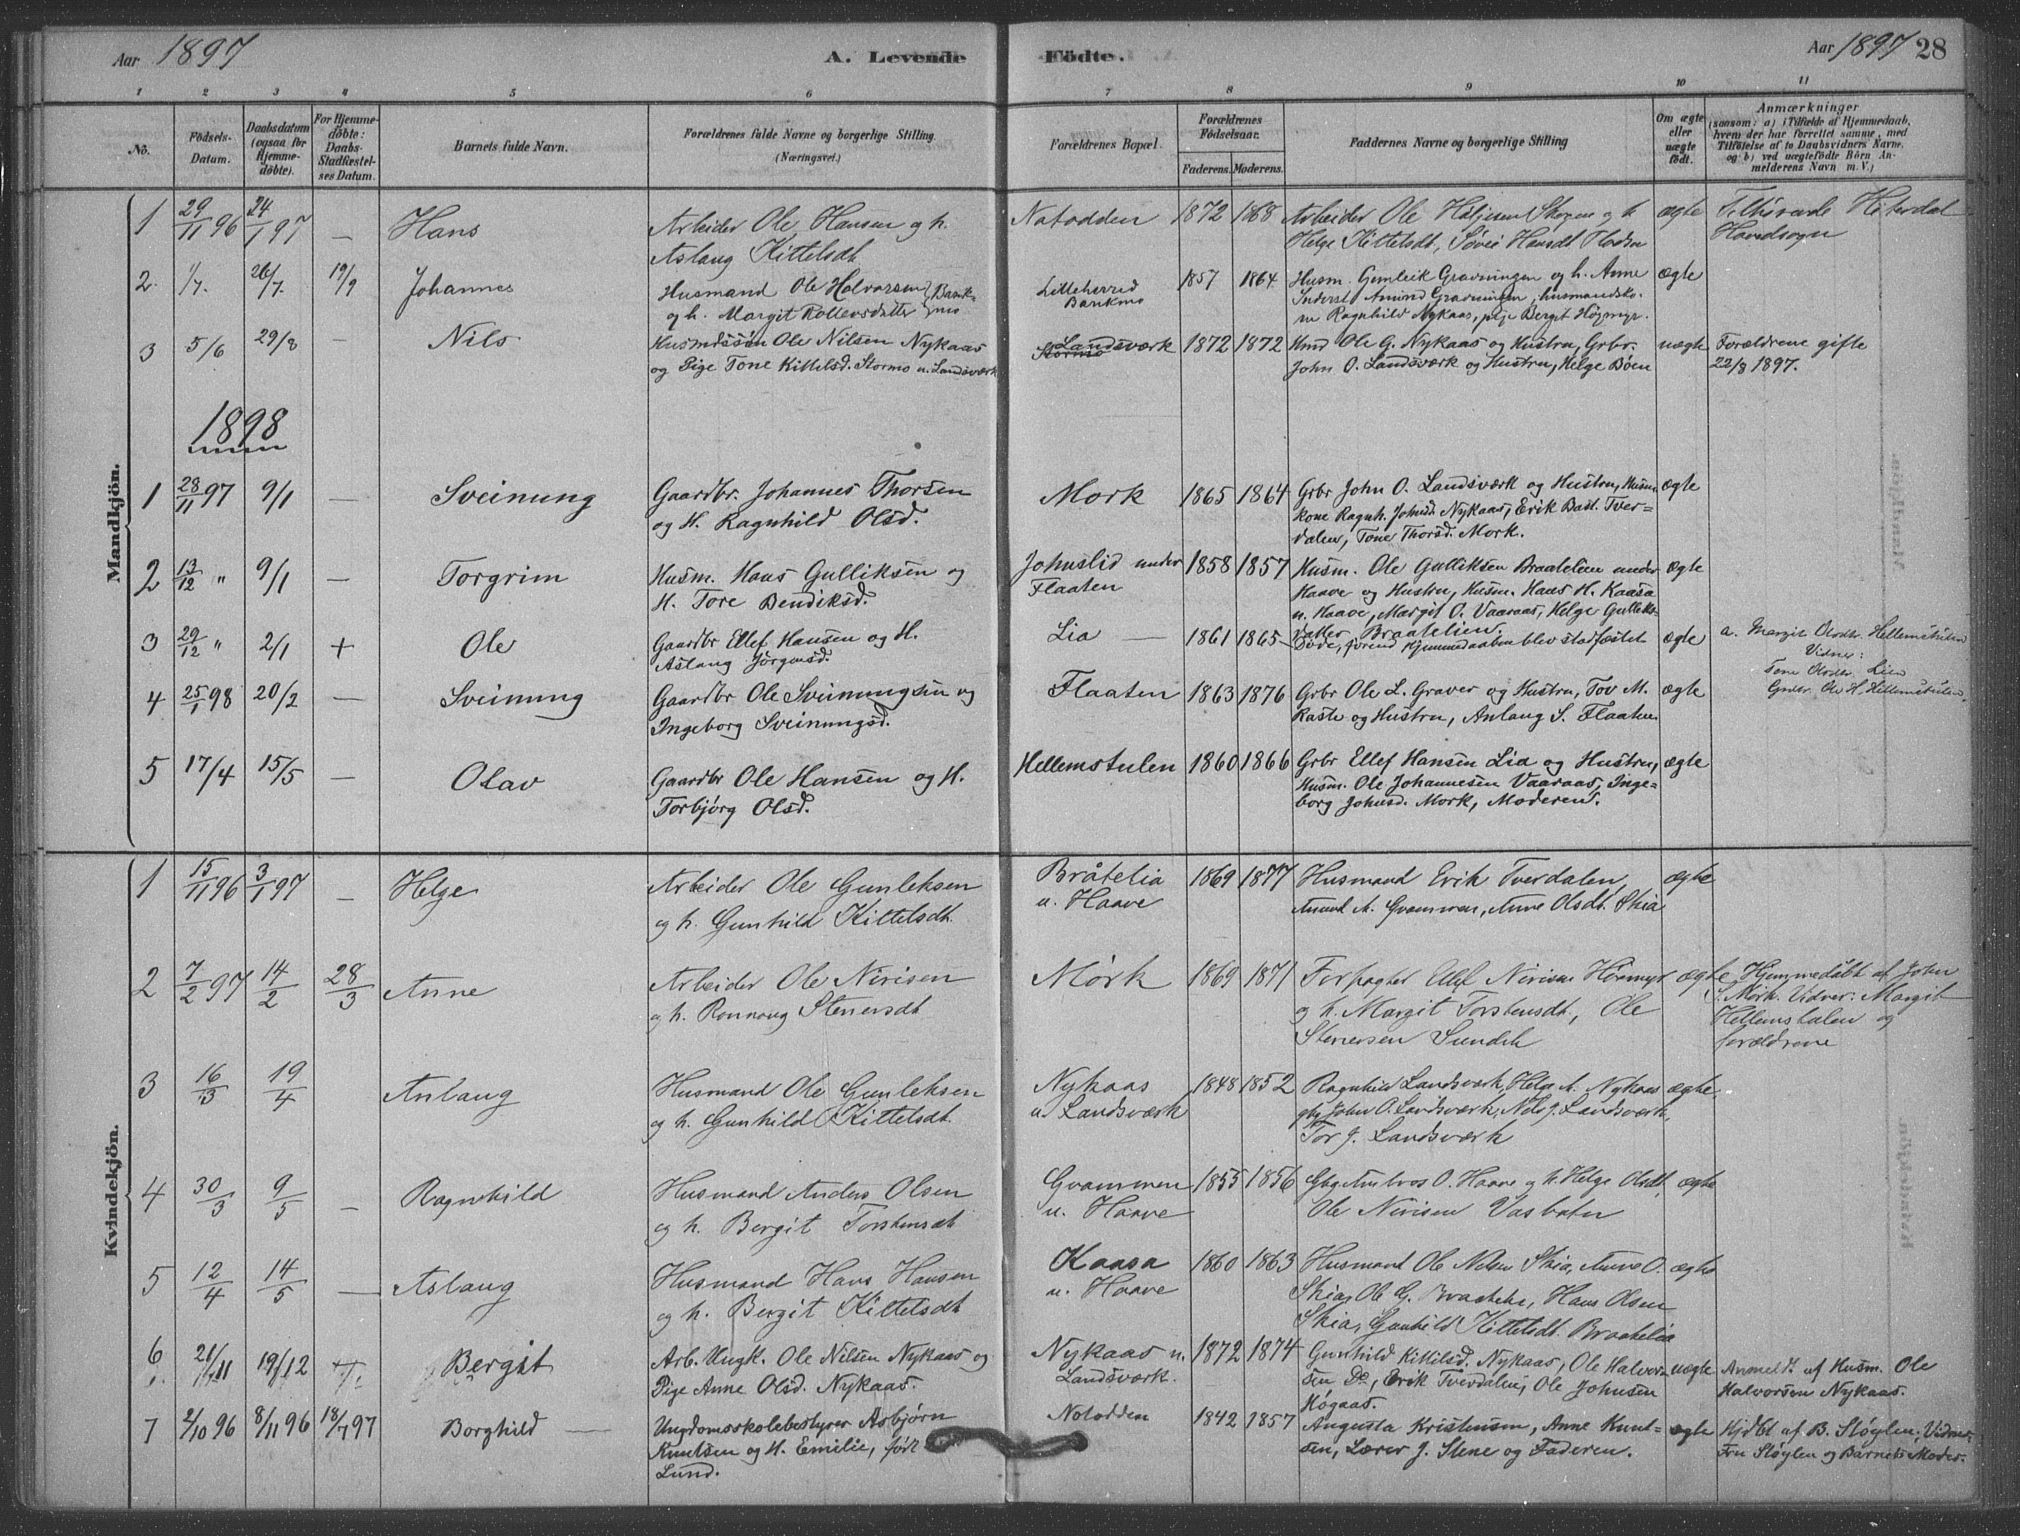 Aar 1897
A. Levende
Födte.
Aar 1897 28
1 2 3 4 5 6 7 8 9 10 11
No.
Födsels-
Datum.
Daabsdatum
(ogsaa for
Hjemme-
döbte).
For Hjemme-
döbte:
Daabs-
Stadfæstel-
ses Datum.
Barnets fulde Navn.
Forældrenes fulde Navne og borgerlige Stilling.
(Næringsvei.)
Forældrenes Bopæl.
Forældrenes
Födselsaar.
Faderens. Moderens.
Faddernes Navne og borgerlige Stilling
Om ægte
eller
uægte
födt.
Anmærkninger
(saasom: a) i Tilfælde af Hjemmedaab,
hvem der har forrettet samme, med
Tilföielse af to Daabsvidners Navne,
og b) ved uægtefödte Börn An-
melderens Navn m. V.)
Mandkjön.
1 29/11 96 24/1 97 — Hans
Arbeider Ole Hansen og h.
Aslaug Kittelsdt
Notodden 1872 1868
Arbeider Ole Skogen og h
Helge Kittelsdt, Hansdt
ægte
Tilhørende Hiterdal
Hovedsogn
2. 1/7. 26/7. 19/9 Johannes
Husmand Ole Halvorsen Bark-
og h. Margit mo
Lilleherred
Barkmo
1857 1864
Husm. Gunleik Gravningen og h. Anne
Amund Gravningen, husmandsko-
ne Ragnhild Nykaas, pige Bergit
ægte
3 5/6 29/8 — Nils
Husmdssøn Ole Nilsen Nykaas
og Pige Tone Kittelsd. Stormo u. Landsværk
Landsværk
Stormo
1872 1872
Ole G. Nykaas og Hustru, Grbr.
John O. Landsværk og Hustru, Helge Bøen
uægte
Forældrene gifte
22/8 1897.
1898
1 28/11 97 9/1 — Sveinung
Gaardbr. Johannes Thorsen
og H. Ragnhild Olsd.
Mork 1865 1864
Grbr John O. Landsværk og Hustru, Husm
kone Ragnh. Johnsd. Nykaas, Erik Bast. Tver=
dalen, Tone Thorsd. Mork.
ægte
2 13/12 " 9/1 — Torgrim
Husm. Hans Gulliksen og
H. Tore Bendiksd.
Johnslid under
Flaaten
1858 1857
Husm. Ole Gulliksen Braatelien under
Haave og Hustru, Husm. Hans H. Kaasa
u. Haave, Margit O. Vaaraas, Helge Gulliks-
datter Braatelien.
ægte
3 29/12 " 2/1 + Ole
Gaardbr Ellef Hansen og H.
Aslaug Jörgensd.
Lia — 1861 1865
Døde, førend Hjemmedaaben blev stadfæstet
ægte
a. Margit Olsdtr. Hellemstulen
Vidner:
Tone Olsdtr. Lien
Ole H. Hellemstulen.
4 25/1 98 20/2 — Sveinung
Gaardbr Ole Sveinungsen og
Ingeborg Sveinungsd.
Flaaten 1863 1876
Grbr Ole L. Graver og Hustru, Tov M.
Raste og Hustru, Anlaug S. Flaaten.
ægte
5 17/4 15/5 — Olav
Gaardbr Ole Hansen og H.
Torbjørg Olsd.
Hellemstulen 1860 1866
Grbr Ellef Hansen Lia og Hustru,
Husm. Ole Johannesen Vaaraas, Inge-
borg Johnsd. Mork, Moderen.
ægte
Kvindekjön.
1 15/11 96 3/1 97 — Helge
Arbeider Ole Gunleksen
og h. Gunhild Kittelsdt.
Bråtelia
u. Haave
1869 1877
Husmand Erik Tverdalen
A. Gvammen, Anne Olsdt. Skia
ægte
2 7/2 97 14/2 28/3 Anne
Arbeider Ole Nirisen
og h. Ronnaug Stenersdt
Mørk 1869 1871
Forpagter Ellef Nirisen
og h. Margit Torstensdt., Ole
Stenersen
ægte
Hjemmedöbt af John
S. Mørk. Vidner: Margit
Hellemstulen og
forældrene
3 16/3 19/4 Anlaug
Husmand Ole Gunleksen
og h. Gunhild Kittelsdt.
Nykaas
u. Landsværk
1848 1852
Ragnhild Landsværk, Helge A. Nykaas
gbr John O. Landsværk, Nels J. Landsværk,
Tor J. Landsværk
ægte.
4 30/3 9/5 — Ragnhild
Husmand Anders Olsen
og h. Bergit Torstensdt
Gvammen
u. Haave
1855 1856
Gbr Ambros O. Haave og h. Helge Olsdt,
Ole Nirisen
ægte
5 12/4 14/5 — Aslaug
Husmand Hans Hansen
og h. Bergit Kittelsdt
Kaasa
u. Haave
1860 1863
Husmand Ole Nilsen Skia, Anne O.
Skia, Ole G. Hans Olsen
Skia, Gunhild Kittelsdt. Braatelia
ægte
6 21/11 19/12 Bergit
Arb. Ungk. Ole Nilsen Nykaas og
Pige Anne Olsd. Nykaas.
Nykaas u.
Landsværk.
1872 1874
Gunhild Kittilsd. Nykaas, Ole Halvor-
sen Do, Erik Tverdalen, Ole Johnsen
Høgaas.
uægte
Anmeldt af Husm. Ole
Halvorsen Nykaas.
7 2/10 96 8/11 96 18/7 97 Borghild —
Ungdomsskolebestyrer Asbjørn
Knutsen og H. Emilie, født
Lund.
Notodden 1842 1857
Augusta Kristensen, Anne Knut-
sen, Lærer J. Stene og Faderen.
ægte
Hjdbt af B. Støylen; Vidner:
Fru Støylen og Barnets Moder.